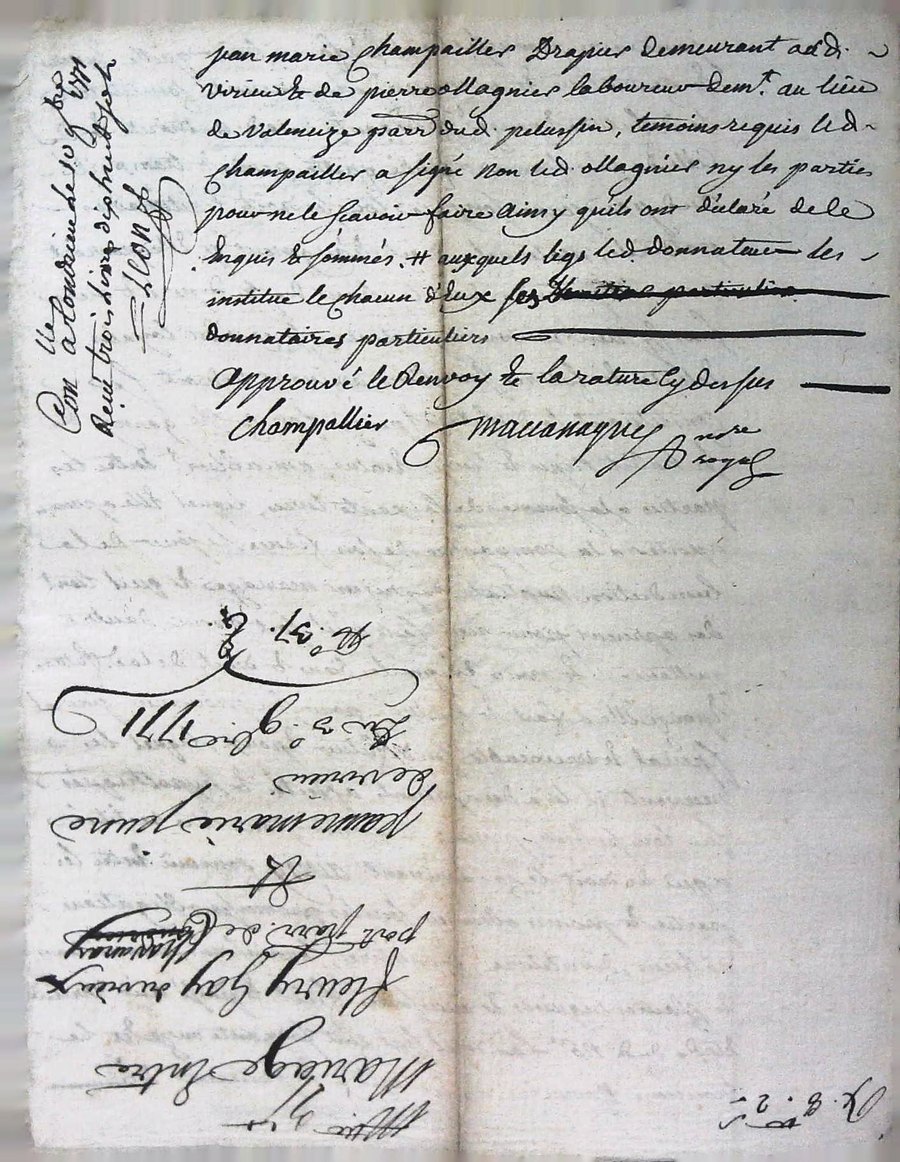 jean marie Champailler Drapier demeurant aud.
virieu & de pierre ollagnier laboureur dem.t au lieu
de Valencize parr. dud. pelussin, temoins requis led.
Champailler a signé non led. ollagnier ny les parties
pour ne le scavoir faire ainsy qu'ils ont déclaré de ce
Enquis & sommés. # auxquels legs led. donnateur les
institue le chacun d'eux ses heritiers particuliers
donnataires particuliers
approuvé le Renvoy & la rature cy dessus
Champallier
nore
royal
Con
a Condrieu le 10 9bre 1771
Reçu trois livres dix huit sols
Mariage Entre
fleury Gay du vieux
port parr. de Chavanay
Et
jeanne marie jeune
de virieu
Du 3.o 9bre 1771
No. 37.